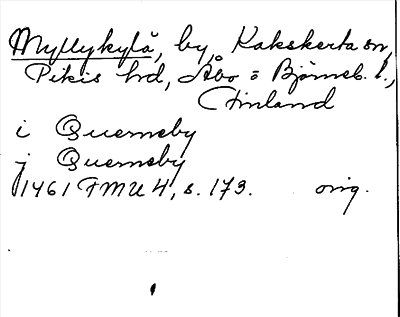 Myllykylä, by, Kakskerta sn,
Pikis hd, Åbo o Björneb. l.,
Finland
i Querneby
j Querneby
1461 FMU 4, s. 173. orig.